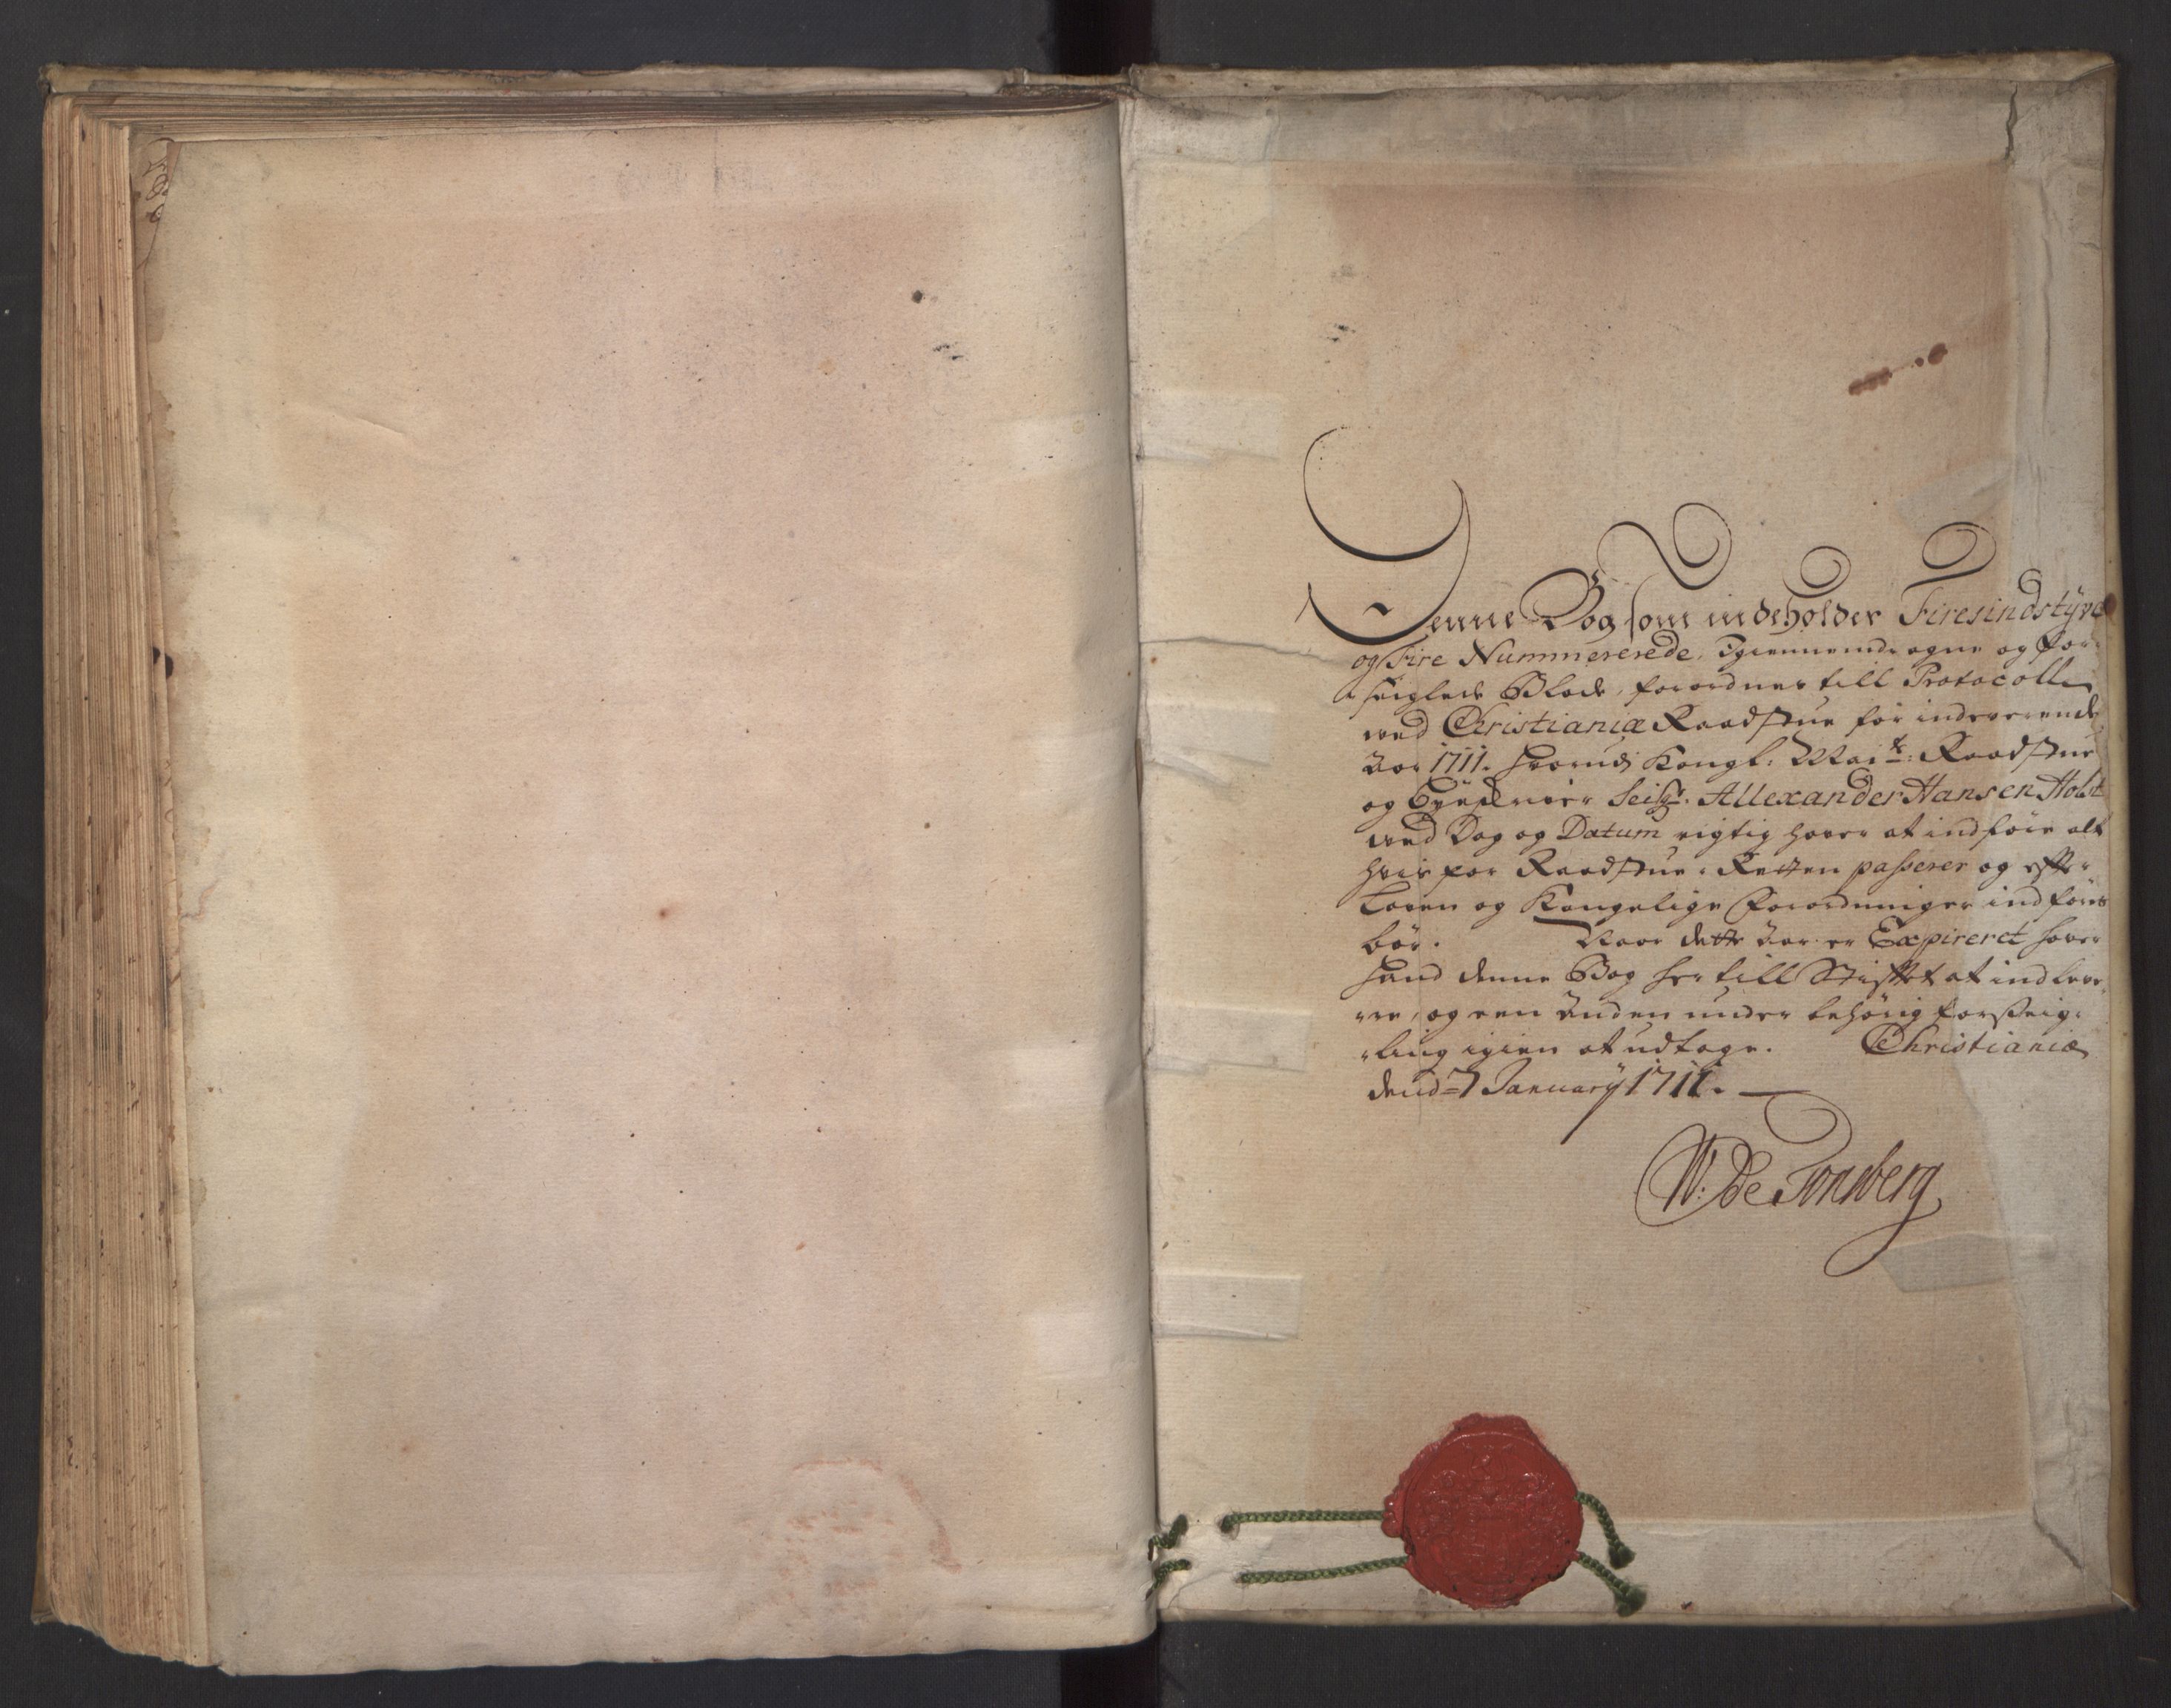 Denne Bog som indeholder Firesindstÿve
og Fire Nummererede, Igiennemdragne og for-
seiglede Blade, forordnes till Protocoll
ved Christianiæ Raadstue for indeverende
Aar 1711. hvorudj Kongl: Maits: Raadstue
og Byeskriver Seigr: Allexander Hansen Holst
ved Dag og Datum rigtig haver at indføre alt
hvis for Raadstue-Retten passerer og efter
Loven og Kongelige Forordninger indføres
bør. Naar dette Aar er Expireret haver
hand denne Bog her till Stiftet at indleve-
re, og een Anden under behørig forseig-
ling igien at udtage. Christianiæ
dend 7 Januarÿ 1711.
W: De Tonsberg